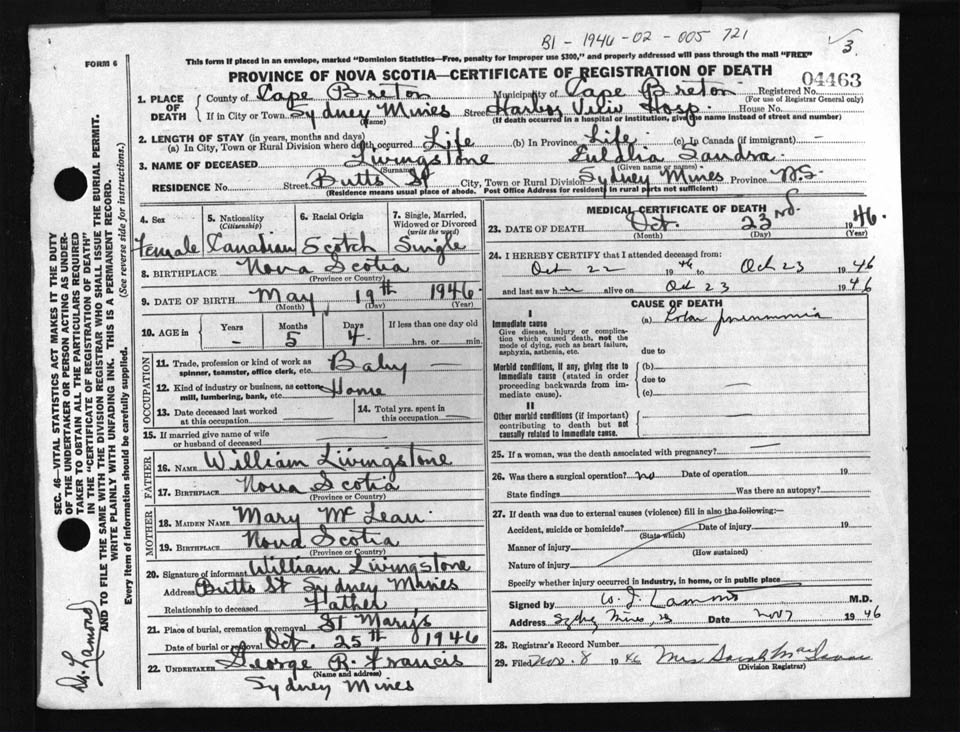 B1 - 1946 - 02 - 005 721
3.
FORM 6
This form if placed in an envelope, marked "Dominion Statistics—Free, penalty for improper use $300," and properly addressed will pass through the mail "FREE"
PROVINCE OF NOVA SCOTIA—CERTIFICATE OF REGISTRATION OF DEATH
04463
1. PLACE OF DEATH { County of Cape Breton Municipality of Cape Breton Registered No.
(For use of Registrar General only)
If in City or Town Sydney Mines Street Harbor View Hosp. House No.
(Name) (If death occurred in a hospital or institution, give the name instead of street and number)
2. LENGTH OF STAY (in years, months and days)
(a) In City, Town or Rural Division where death occurred Life (b) In Province Life (c) In Canada (if immigrant) —
3. NAME OF DECEASED Livingstone Eulalia Sandra
(Surname) (Given name or names)
RESIDENCE No. Street Butts St City, Town or Rural Division Sydney Mines Province N.S.
(Residence means usual place of abode. Post Office Address for residents in rural parts not sufficient)
SEC. 46—VITAL STATISTICS ACT MAKES IT THE DUTY
OF THE UNDERTAKER OR PERSON ACTING AS UNDER-
TAKER TO OBTAIN ALL THE PARTICULARS REQUIRED
IN THE "CERTIFICATE OF REGISTRATION OF DEATH"
AND TO FILE THE SAME WITH THE DIVISION REGISTRAR WHO SHALL ISSUE THE BURIAL PERMIT.
WRITE PLAINLY WITH UNFADING INK. THIS IS A PERMANENT RECORD.
Every item of information should be carefully supplied. (See reverse side for instructions.)
Dr. Lamond
4. Sex 5. Nationality (Citizenship) 6. Racial Origin 7. Single, Married, Widowed or Divorced (write the word)
Female Canadian Scotch Single
8. BIRTHPLACE Nova Scotia
(Province or Country)
9. DATE OF BIRTH May 19th 1946
(Month) (Day) (Year)
10. AGE in { Years Months Days If less than one day old
- 5 4 hrs. or min.
OCCUPATION
11. Trade, profession or kind of work as spinner, teamster, office clerk, etc. Baby —
12. Kind of industry or business, as cotton mill, lumbering, bank, etc. Home
13. Date deceased last worked at this occupation
14. Total yrs. spent in this occupation —
15. If married give name of wife or husband of deceased —
FATHER
16. NAME William Livingstone
17. BIRTHPLACE Nova Scotia
(Province or Country)
MOTHER
18. MAIDEN NAME Mary McLean
19. BIRTHPLACE Nova Scotia
(Province or Country)
20. Signature of informant William Livingstone
Address Butts St Sydney Mines
Relationship to deceased Father
21. Place of burial, cremation or removal St Marys
Date of burial or removal Oct. 25th 1946
22. UNDERTAKER George R. Francis
(Name and address)
Sydney Mines
MEDICAL CERTIFICATE OF DEATH
23. DATE OF DEATH Oct. 23rd. 1946.
(Month) (Day) (Year)
24. I HEREBY CERTIFY that I attended deceased from:
Oct 22 1946 to Oct 23 1946
and last saw h alive on Oct 23 1946
CAUSE OF DEATH
I
Immediate cause (a) Lobar pneumonia
Give disease, injury or complica-
tion which caused death, not the
mode of dying, such as heart failure,
asphyxia, asthenia, etc. due to
Morbid conditions, if any, giving rise to (b)
immediate cause (stated in order due to
proceeding backwards from im- (c)
mediate cause).
II
Other morbid conditions (if important)
contributing to death but not
causally related to immediate cause.
25. If a woman, was the death associated with pregnancy? —
26. Was there a surgical operation? no Date of operation 19
State findings Was there an autopsy?
27. If death was due to external causes (violence) fill in also the following:—
Accident, suicide or homicide? Date of injury 19
(State which)
Manner of injury
(How sustained)
Nature of injury
Specify whether injury occurred in industry, in home, or in public place
Signed by M.D.
Address Sydney Mines, NS Date Nov 7 1946
28. Registrar's Record Number
29. Filed Nov. 8 1946 Mrs Sarah MacIsaac
(Division Registrar)